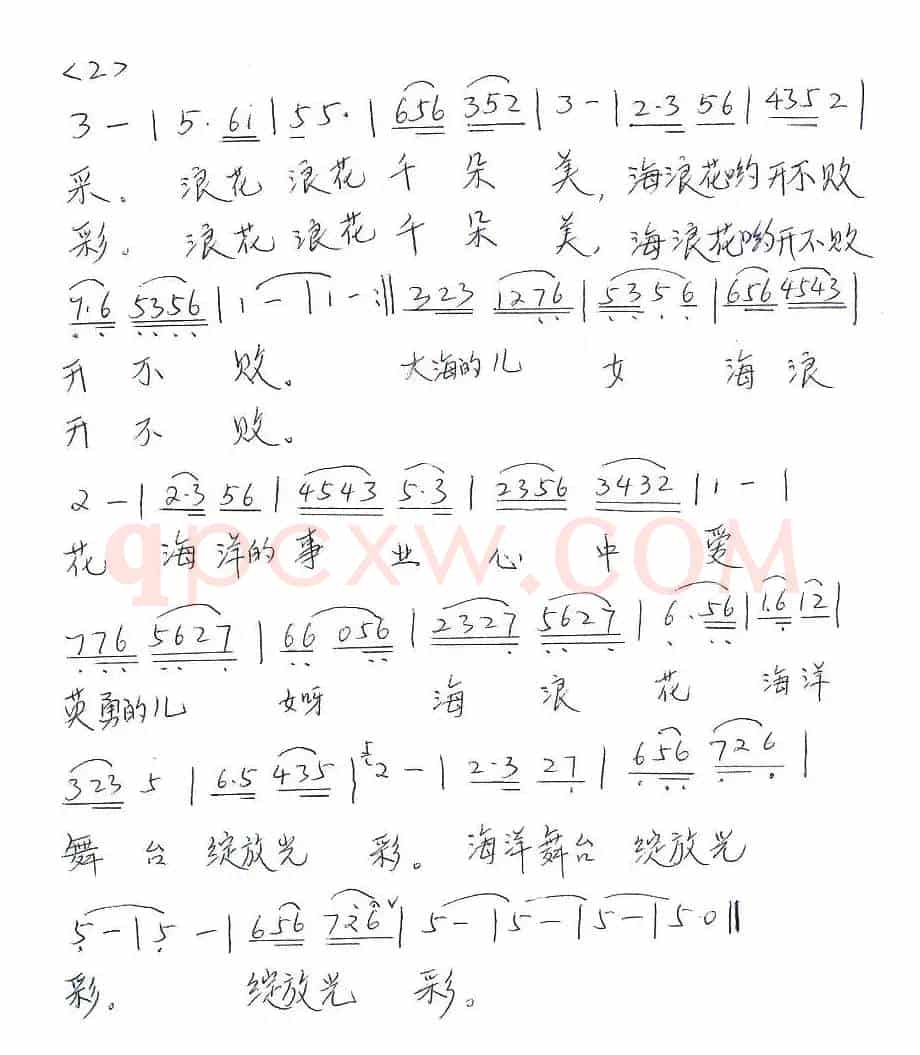 <2>
3 - | 5· 6i | 5 5· | 656 352 | 3 - | 2·3 56 | 435 2 |
采。 浪花 浪花 千 朵 美, 海浪花哟开不败
彩。 浪花 浪花 千 朵 美, 海浪花哟开不败
7·6 5356 | 1 - | 1 - :|| 323 1276 | 53 5 6 | 656 4543 |
开 不 败。 大海的儿 女 海 浪
开 不 败。
2 - | 2·3 56 | 4543 5·3 | 2356 3432 | 1 - |
花 海 洋的 事 业 心 中 爱
qpcxw.com
776 5627 | 66 056 | 2327 5627 | 6·56 | 1·6 12 |
英勇的儿 女呀 海 浪 花 海洋
323 5 | 6·5 435 | 5 2 - | 2·3 27 | 656 726 |
舞 台 绽放光 彩。 海洋舞台 绽放光
5 - | 5 - | 656 726 ∨ | 5 - | 5 - | 5 - | 5 0 ||
彩。 绽放光 彩。